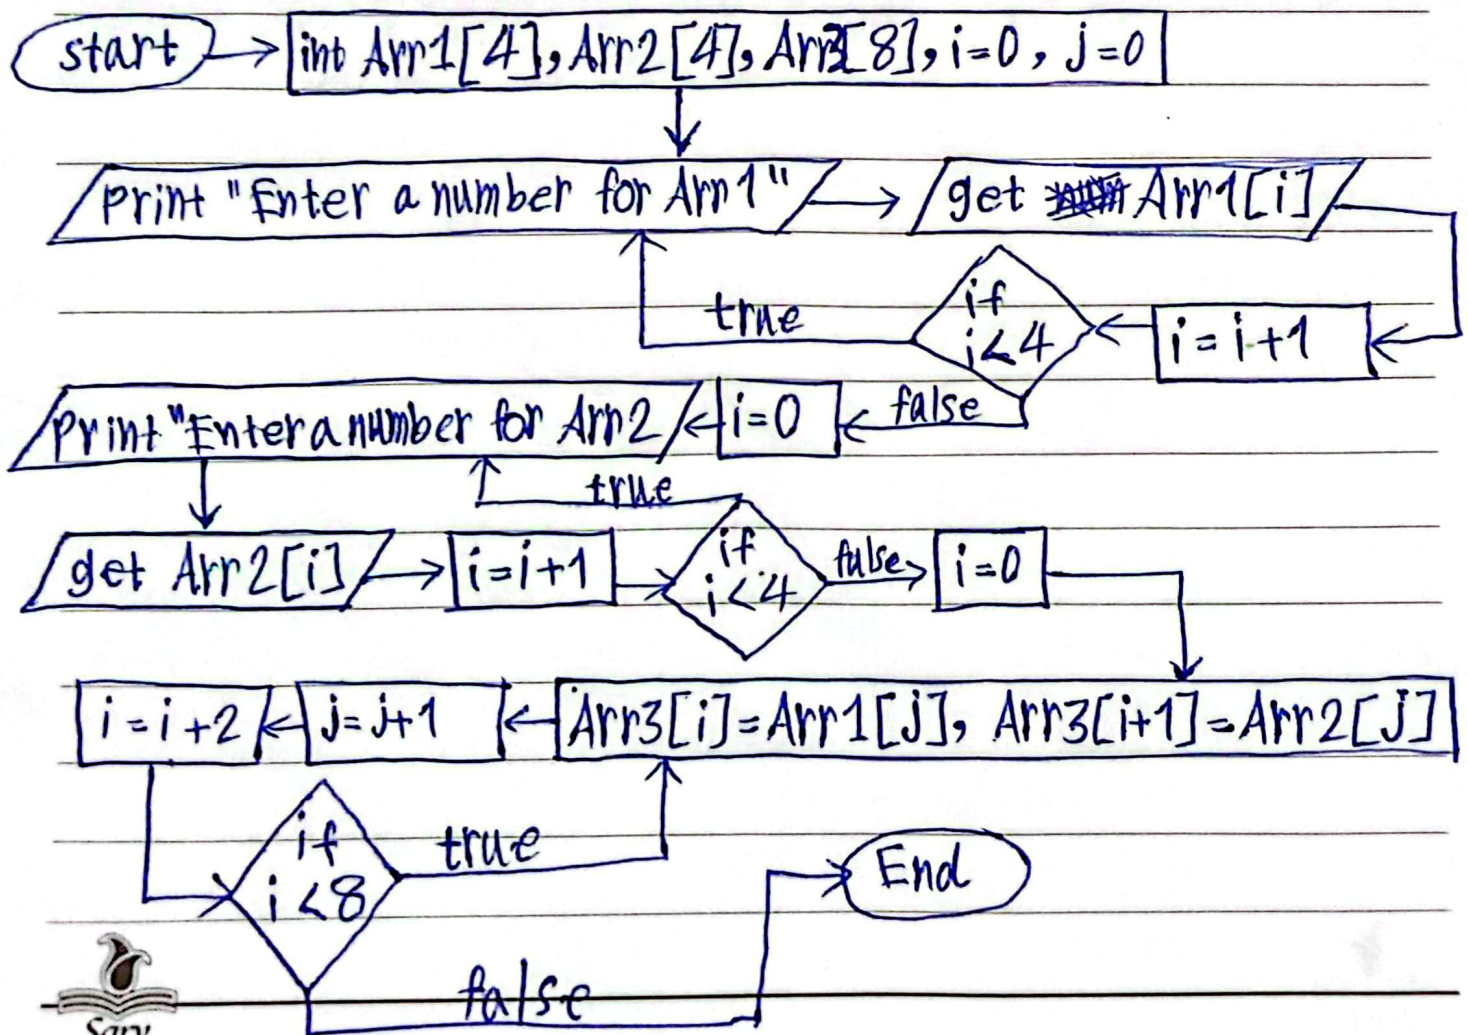 start int Arr1[4], Arr2[4], Arr3[8], i=0, j=0
print "Enter a number for Arr1" get Arr1[i]
if
true i<4 i=i+1
print "Enter a number for Arr2 i=0 false
true
get Arr2[i] i=i+1 if i<4 false i=0
i=i+2 j=j+1 Arr3[i]=Arr1[j], Arr3[i+1]=Arr2[j]
if true
i<8 End
false
Sarv